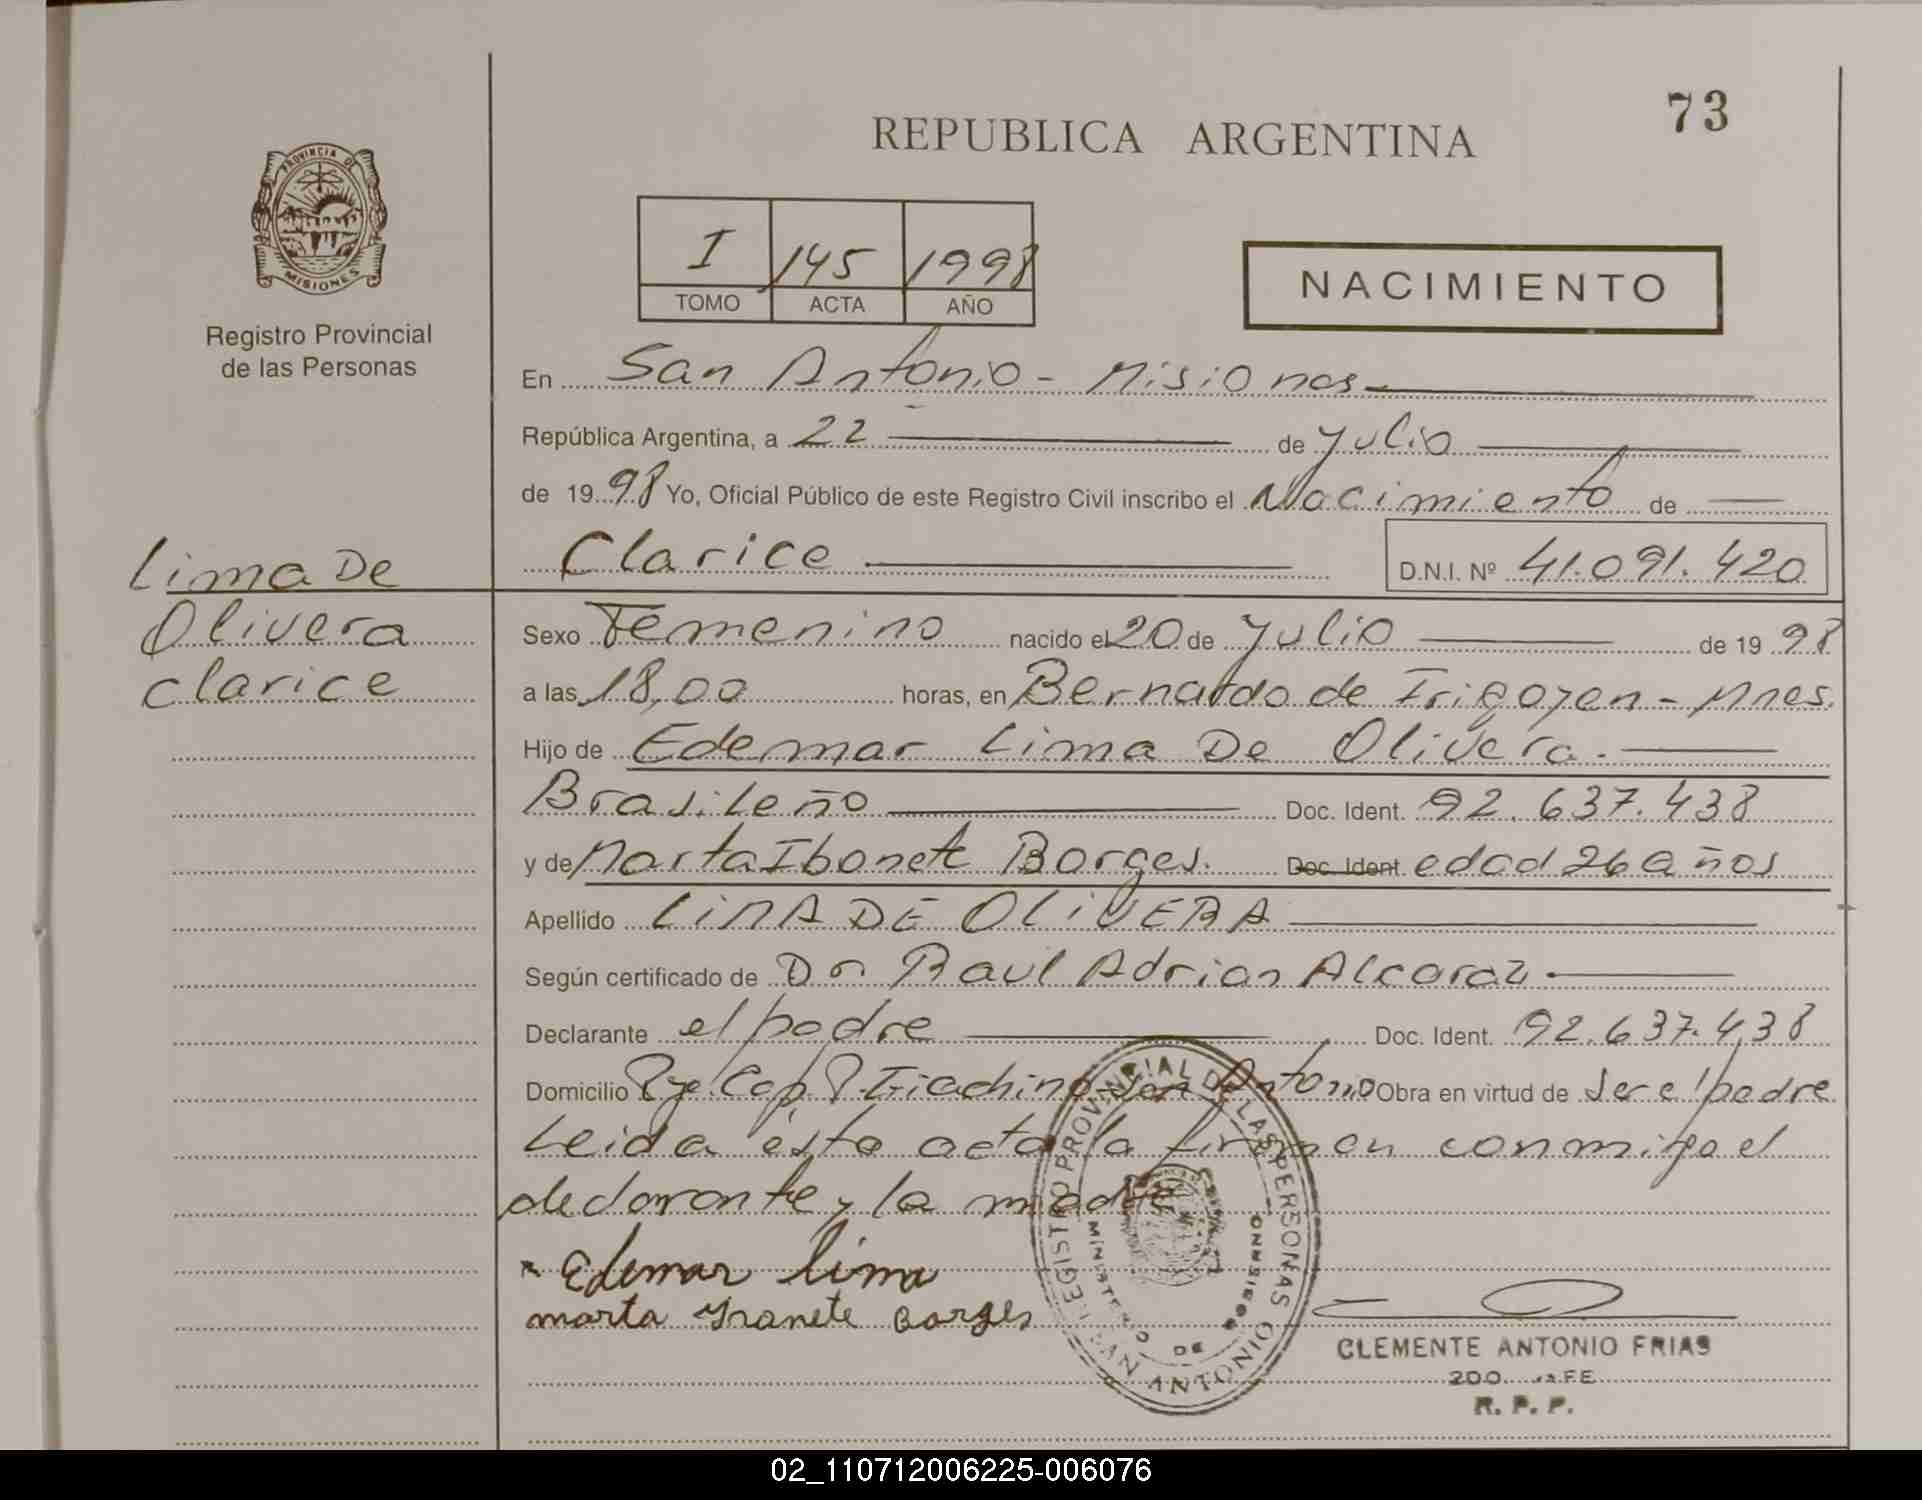 73
REPUBLICA ARGENTINA
PROVINCIA DE
MISIONES
Registro Provincial
de las Personas
I 145 1998
TOMO ACTA AÑO
NACIMIENTO
En San Antonio - Misiones
República Argentina, a 22 de julio
de 1998 Yo, Oficial Público de este Registro Civil inscribo el Nacimiento de
Clarice D.N.I. Nº 41.091.420
Lima De
Olivera
Clarice
Sexo Femenino nacido el 20 de julio de 1998
a las 18,00 horas, en Bernardo de Irigoyen - Mnes.
Hijo de Edemar Lima De Olivera.
Brasileño Doc. Ident. 92.637.438
y de Marta Ibonete Borges. Doc. Ident edad 26 años
Apellido LIMA DE OLIVERA
Según certificado de Dr. Raul Adrian Alcaraz
Declarante el padre Doc. Ident. 92.637.438
Domicilio Cap. San Antonio Obra en virtud de ser el padre
Leida ésta acta la firman conmigo el
declarante y la madre
Edemar Lima
marta Borges
REGISTRO PROVINCIAL DE LAS PERSONAS
SAN ANTONIO
MINISTERIO DE
CLEMENTE ANTONIO FRIAS
R. P. P.
02_110712006225-006076